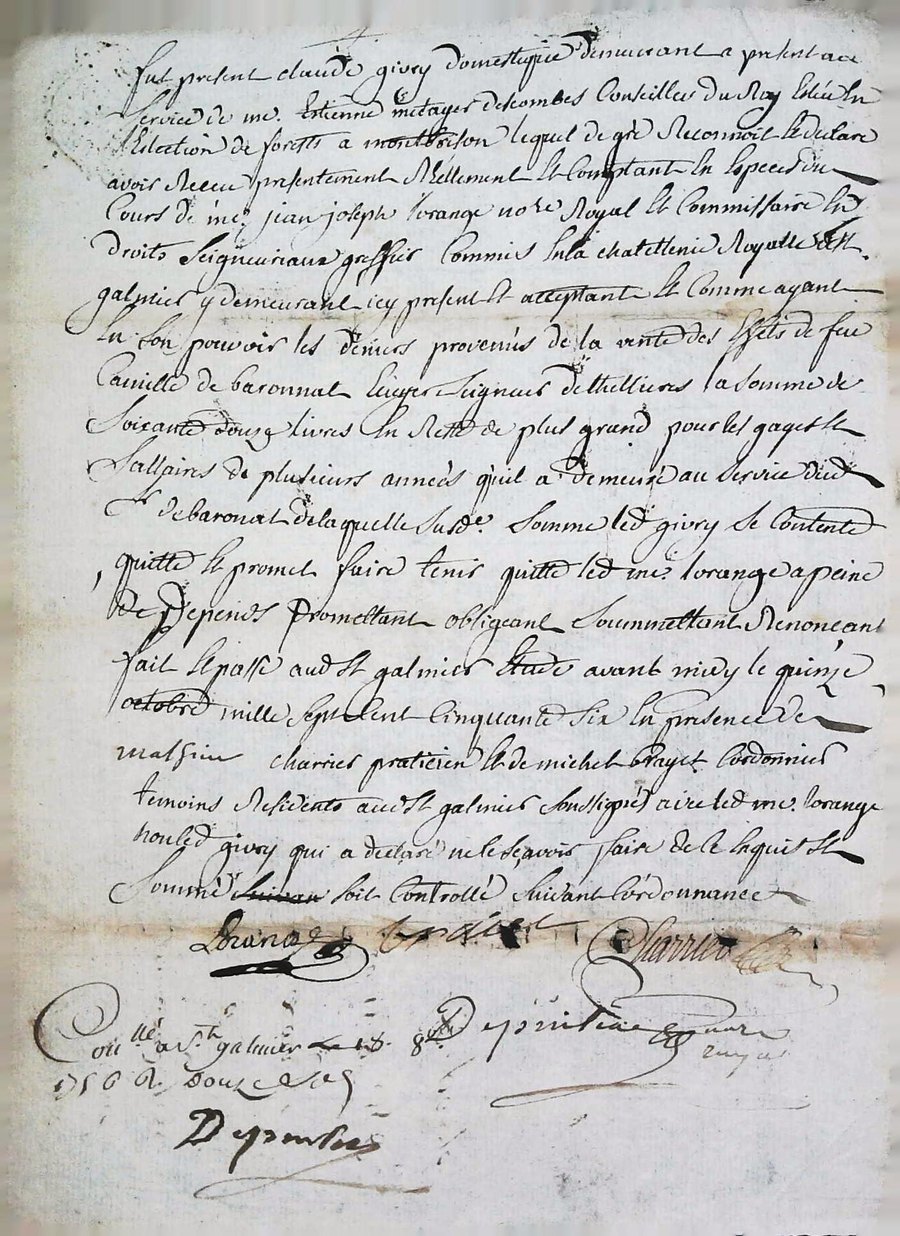 fut present claude givry domestique demeurant a present au
service de me. Etienne metayer descombes Conseiller du Roy Esleu En
l'Election de forests a montbrison lequel de gré Reconnoit Et declare
avoir Receu presentement Réellement Et Comptant En Especes du
Cours de me. jean joseph lorange nore Royal Et Commissaire En
droits seigneuriaux greffier Commis En la chatellenie Royalle de St
galmier y demeurant icy present Et acceptant Et Comme ayant
En son pouvoir les deniers provenus de la vente des Effets de feu
Camille de baronnat Ecuyer seigneur de thellieres la somme de
soixante douze livres En Reste de plus grand pour les gages Et
sallaires de plusieurs années qu'il a demeuré au service dud
sr de baronat de laquelle susde. somme led givry se Contente
quitte Et promet faire tenir quitte led me. lorange a peine
de Depends Promettant obligeant soummettant Renonçant
fait Et passé aud St galmier Etude avant midy le quinze
octobre mille sept Cent Cinquante six En presence de
mathieu charrier praticien Et de michel brayet Cordonnier
temoins Residents aud St galmier soussignés avec led me. lorange
non led givry qui a declaré ne le sçavoir faire de ce Enquis Et
sommé soit Controllé suivant l'ordonnance
Lorange Brayet Charrier
Depuntieu nore
royal
Conllé a St galmier le 18. 8bre
1756 R. Douze sols
Depuntieu